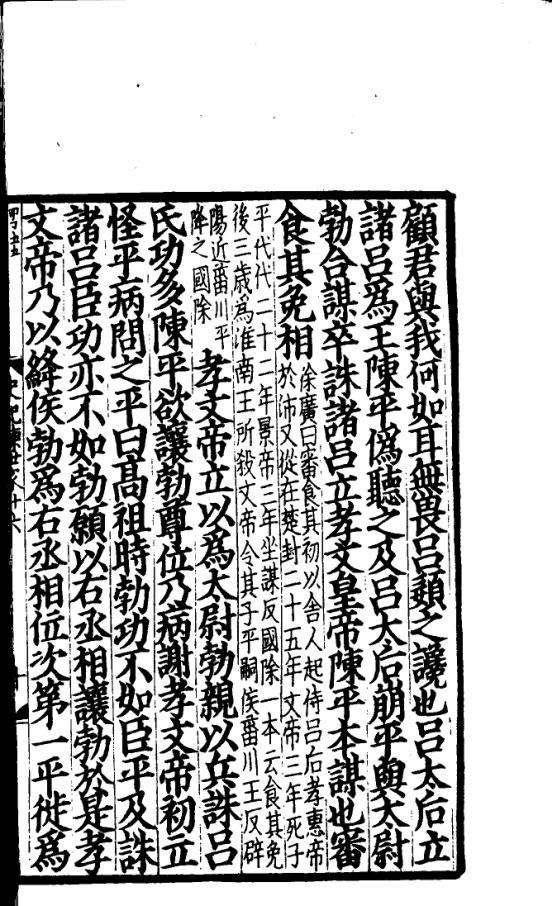 顧君與我何如耳無畏呂嬃之讒也呂太后立
諸呂爲王陳平僞聽之及呂太后崩平與太尉
勃合謀卒誅諸呂立孝文皇帝陳平本謀也審
食其免相
徐廣曰審食其初以舍人起侍呂后孝惠帝
於沛又從在楚封二十五年文帝三年死子
平代代二十二年景帝三年坐謀反國除一本云食其免
後三歳爲淮南王所殺文帝令其子平嗣侯菑川王反辟
陽近菑川平
降之國除
孝文帝立以爲太尉勃親以兵誅呂
氏功多陳平欲讓勃尊位乃病謝孝文帝初立
怪平病問之平曰髙祖時勃功不如臣平及誅
諸呂臣功亦不如勃願以右丞相讓勃於是孝
文帝乃以絳侯勃爲右丞相位次第一平徙爲